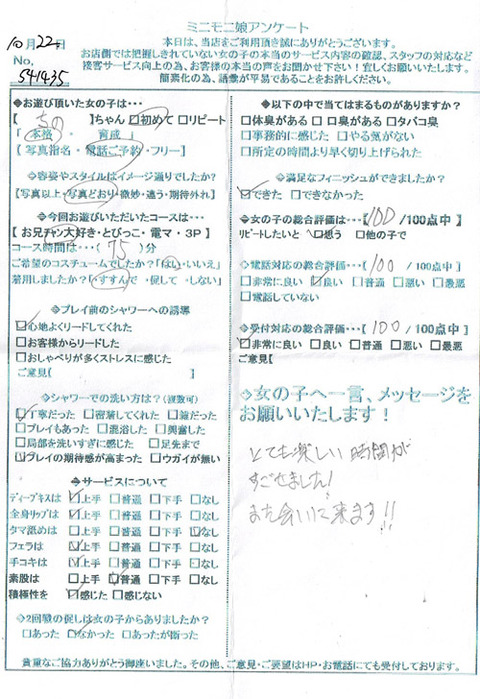 ミニモニ娘アンケート
10月22日
本日は、当店をご利用頂き誠にありがとうございます。
お店側では把握しきれていない女の子の本当のサービス内容の確認、スタッフの対応など
接客サービス向上の為、お客様の本当の声をお聞かせ下さい！宜しくお願いいたします。
簡素化の為、語彙が平易であることをお許しください。
No.
541435
◇お遊び頂いた女の子は・・・
【 ちの 】ちゃん ☑初めて ☐リピート
「本格 ・ 育成」
【 写真指名・電話ご予約・フリー】
◇容姿やスタイルはイメージ通りでしたか？
【写真以上・写真どおり・微妙・違う・期待外れ】
◇今回お遊びいただいたコースは・・・
【お兄チャン大好き・とびっこ・電マ・3P】
コース時間は・・・( 75 )分
ご希望のコスチュームでしたか？「はい・いいえ」
着用しましたか？「・すすんで ・促して ・しない」
◇プレイ前のシャワーへの誘導
☑心地よくリードしてくれた
☐お客様からリードした
☐おしゃべりが多くストレスに感じた
ご意見【 】
◇シャワーでの洗い方は？(複数可)
☑丁寧だった ☐密着してくれた ☐雑だった
☐プレイもあった ☐混浴した ☐興奮した
☐局部を洗いすぎに感じた ☐足先まで
☑プレイの期待感が高まった ☐ウガイが無い
◇サービスについて
ディープキスは ☑上手 ☐普通 ☐下手 ☐なし
全身リップは ☑上手 ☐普通 ☐下手 ☐なし
タマ舐めは ☐上手 ☐普通 ☐下手 ☑なし
フェラは ☑上手 ☐普通 ☐下手 ☐なし
手コキは ☑上手 ☐普通 ☐下手 ☐なし
素股は ☐上手 ☑普通 ☐下手 ☐なし
積極性を ☑感じた ☐感じない
◇2回戦の促しは女の子からありましたか？
☐あった ☑なかった ☐あったが断った
◇以下の中で当てはまるものがありますか？
☐体臭がある ☐口臭がある ☐タバコ臭
☐事務的に感じた ☐やる気がない
☐所定の時間より早く切り上げられた
◇満足なフィニッシュができましたか？
☑できた ☐できなかった
◇女の子の総合評価は・・・( 100 /100点中 )
リピートしたいと ☑思う ☐他の子で
◇電話対応の総合評価・・・( 100 /100点中 )
☐非常に良い ☑良い ☐普通 ☐悪い ☐最悪
☐電話していない
◇受付対応の総合評価・・・( 100 /100点中 )
☑非常に良い ☐良い ☐普通 ☐悪い ☐最悪
ご意見【
◇女の子へ一言、メッセージを
お願いいたします！
とても楽しい時間が
すごせました！
また会いに来ます!!
貴重なご協力ありがとう御座いました。その他、ご意見・ご要望はHP・お電話にても受付しております。